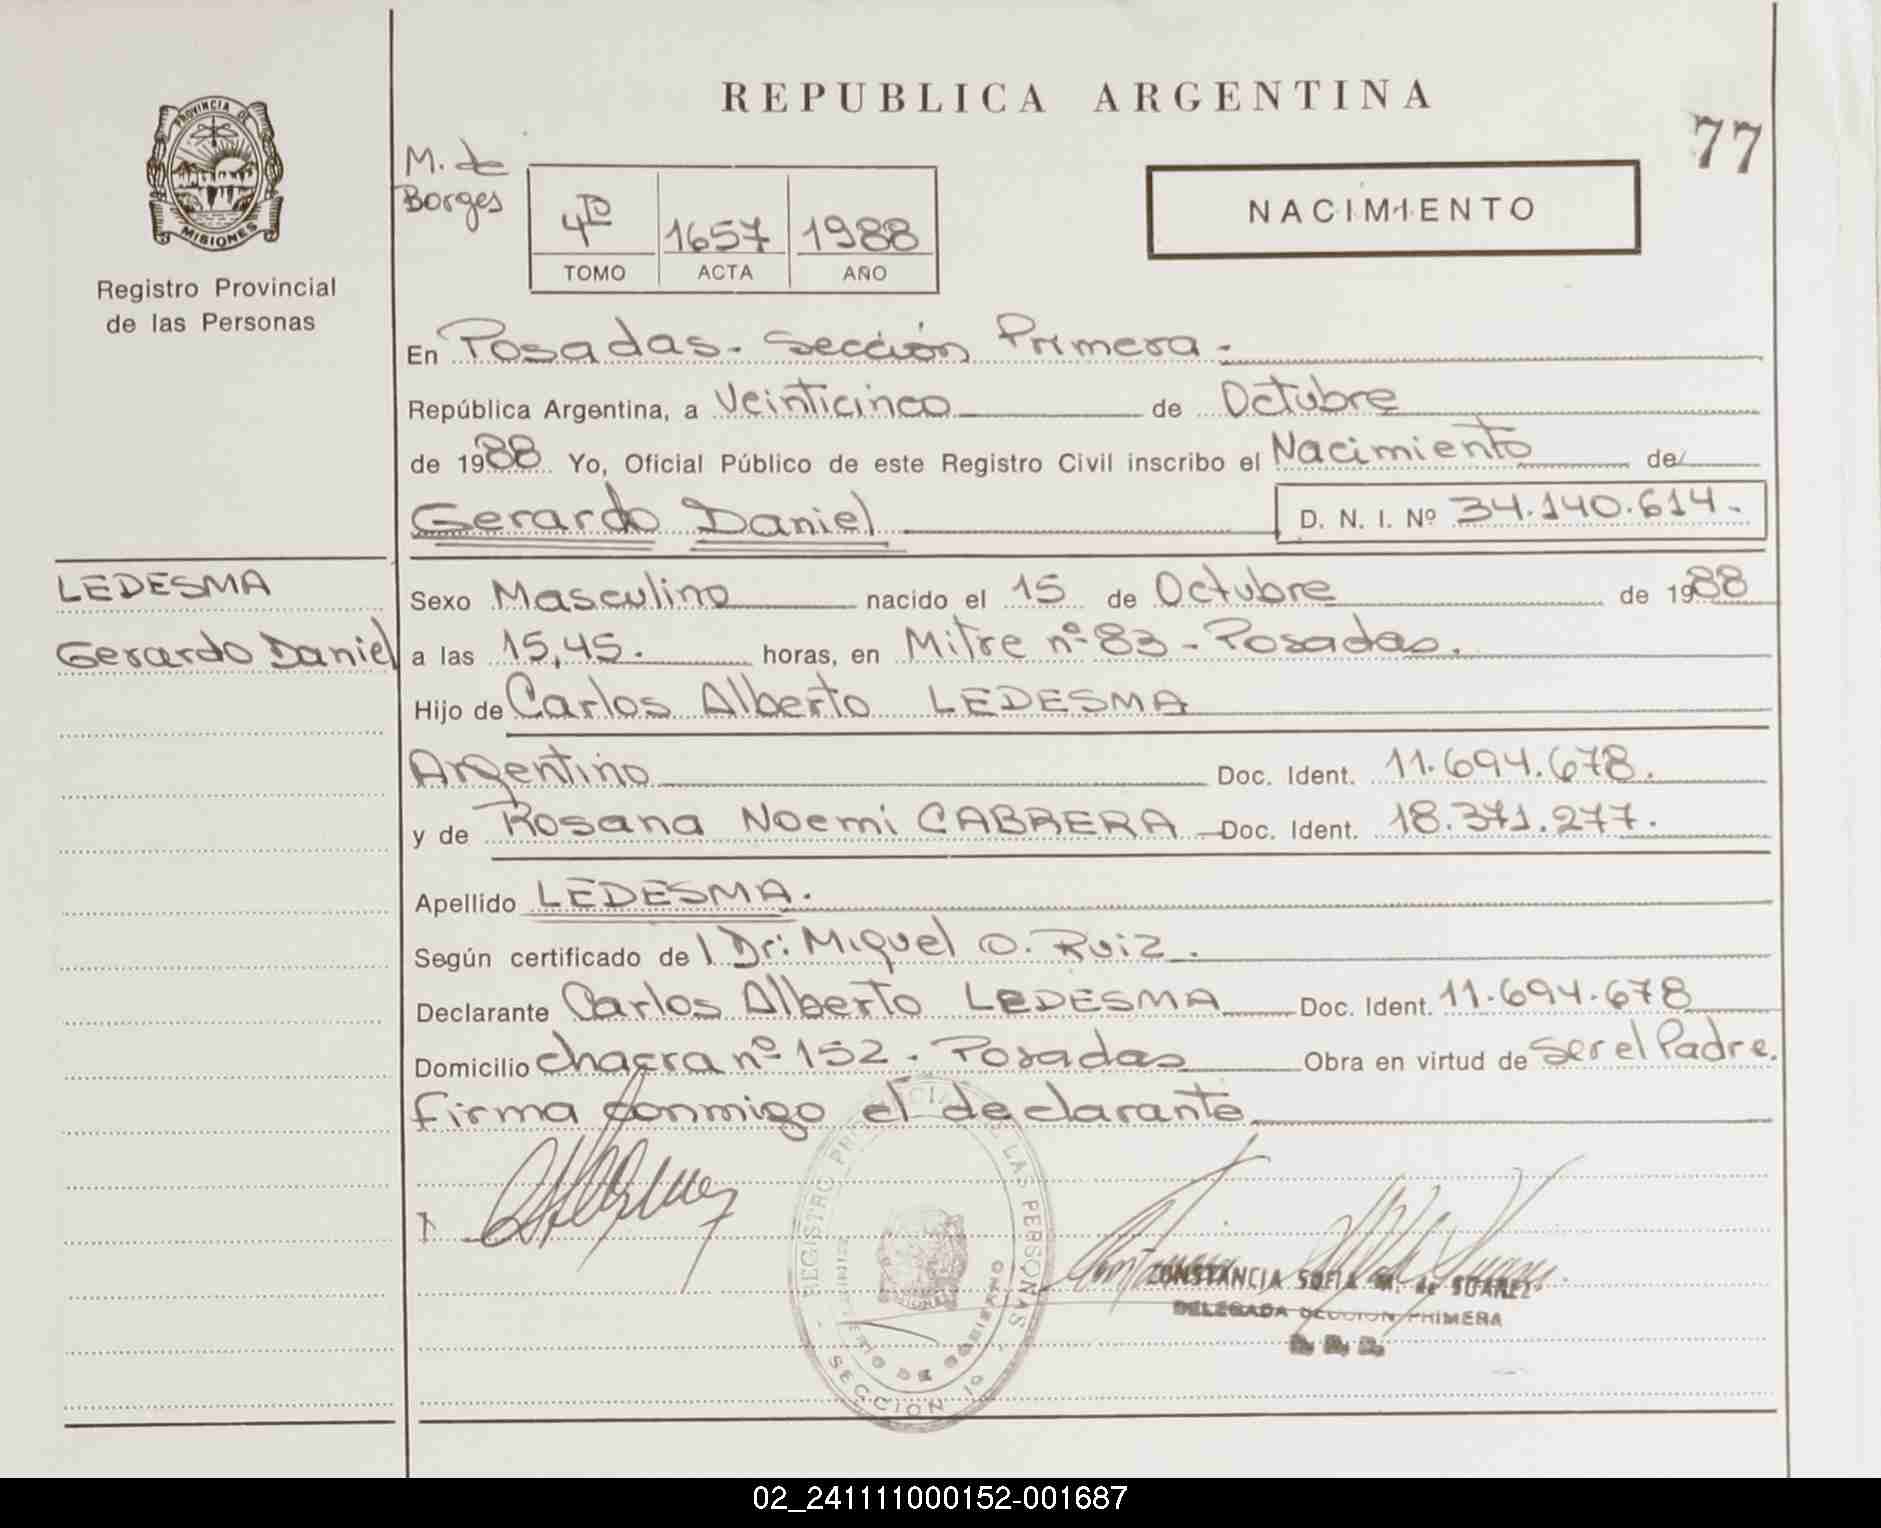 REPUBLICA ARGENTINA
77
PROVINCIA DE
MISIONES
Registro Provincial
de las Personas
M. de
Borges
4º 1657 1988
TOMO ACTA AÑO
NACIMIENTO
En Posadas - Sección Primera.-
República Argentina, a Veinticinco de Octubre
de 1988 Yo, Oficial Público de este Registro Civil inscribo el Nacimiento de
Gerardo Daniel D. N. I. Nº 34.140.614.-
LEDESMA
Gerardo Daniel
Sexo Masculino nacido el 15 de Octubre de 1988
a las 15,45. horas, en Mitre nº 83 - Posadas.
Hijo de Carlos Alberto LEDESMA
Argentino Doc. Ident. 11.694.678.
y de Rosana Noemi CABRERA Doc. Ident. 18.371.277.
Apellido LEDESMA.
Según certificado del Dr: Miguel O. Ruiz.
Declarante Carlos Alberto LEDESMA Doc. Ident. 11.694.678
Domicilio chacra nº 152. Posadas Obra en virtud de Ser el Padre.
firma conmigo el declarante
REGISTRO PROVINCIAL DE LAS PERSONAS
MINISTERIO DE GOBIERNO
SECCION 1º
CONSTANCIA SOFIA M. de SUAREZ
DELEGADA SECCION PRIMERA
02_241111000152-001687